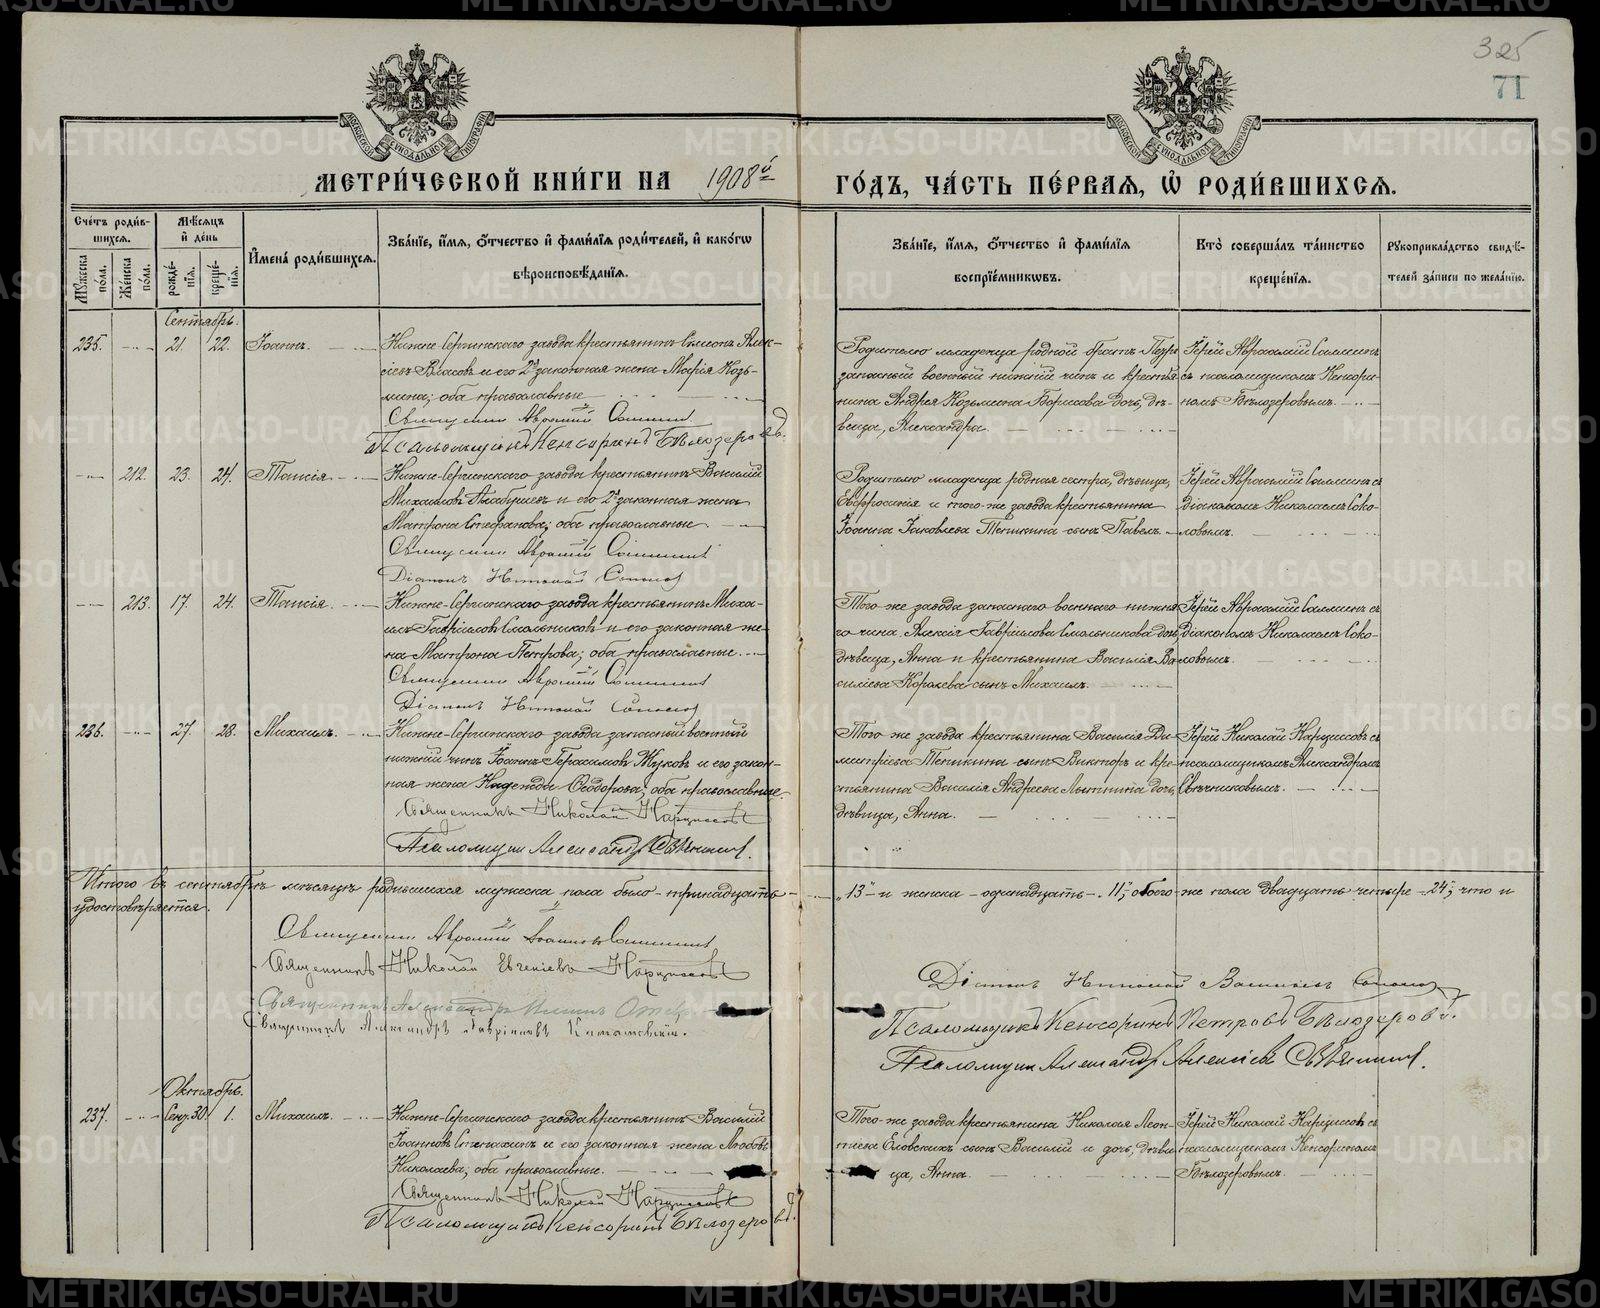 325
71
МЕТРИ́ЧЕСКОЙ КНИ́ГИ НА 1908й
ГО́ДЪ, ЧА́СТЬ ПЕ́РВАЯ, Ѡ҆ РОДИ́ВШИХСЯ.
Сче́тъ роди́в-
шихся.
Мѣ́сяцъ
и҆ де́нь
Мꙋ́жеска по́ла.
Же́нска по́ла.
рожде́-
нїя.
креще́-
нїя.
И҆мена̀ роди́вшихся.
Зва́нїе, и҆́мя, ѻ҆́тчество и҆ фами́лїя роди́телей, и҆ како́гѡ
вѣроисповѣ́данїя.
Зва́нїе, и҆́мя, ѻ҆́тчество и҆ фами́лїя
воспрїе́мникѡвъ.
Кто̀ соверша́лъ та́инство
креще́нїя.
Рꙋкоприкла́дство свидѣ́-
телей за́писи по жела́нїю.
Сентябрь.
235. 21. 22. Іоаннъ.
Нижне-Сергинскаго завода крестьянинъ Симеонъ Алек-
сіевъ Власовъ и его 2я законная жена Марія Козь-
мина; оба православные
Священникъ Авраамій
Псаломщикъ Кенсоринъ Бѣлозеровъ.
Родителю младенца родной братъ Петръ
запасный военный нижній чинъ и крестья-
нина Андрея Козьмина Борисова дочь, дѣ-
вица, Александра.
Іерей Авраамій
съ псаломщикомъ Кенсори-
номъ Бѣлозеровымъ.
212. 23. 24. Таисія
Нижне-Сергинскаго завода крестьянинъ Василій
Михаиловъ и его 2я законная жена
Матрона Стефанова; оба православные
Священникъ Авраамій
Діаконъ Николай Соколовъ
Родителю младенца родная сестра, дѣвица,
Евфросинія и того-же завода крестьянина
Іоанна Іаковлева Тепикина сынъ Павелъ.
Іерей Авраамій съ
діакономъ Николаемъ Соко-
ловымъ.
213. 17. 24. Таисія.
Нижне-Сергинскаго завода крестьянинъ Миха-
илъ Гавріиловъ Смольниковъ и его законная же-
на Матрона Петрова; оба православные.
Священникъ Авраамій
Діаконъ Николай Соколовъ
Того же завода запаснаго военнаго нижня-
го чина Алексія Гавріилова Смольникова дочь,
дѣвица, Анна и крестьянина Василія Ва-
силіева Королева сынъ Михаилъ.
Іерей Авраамій съ
діакономъ Николаемъ Соко-
ловымъ.
236. 27. 28. Михаилъ.
Нижне-Сергинскаго завода запасный военный
нижній чинъ Іоаннъ Герасимовъ Жуковъ и его закон-
ная жена Надежда Ѳеодорова; оба православные.
Священникъ Николай Нарциссовъ
Псаломщикъ Александръ
Того же завода крестьянина Василія Ди-
митріева Тепикина сынъ Викторъ и кре-
стьянина Василія Андреева дочь,
дѣвица, Анна.
Іерей Николай Нарциссовъ съ
псаломщикомъ Александромъ
Итого въ сентябрѣ мѣсяцѣ родившихся мужеска пола было - тринадцать
„13" и женска - одинадцать - „11", обоего же пола двадцать четыре „24", что и
удостовѣряется.
Священникъ Авраамій Іоанновъ
Священникъ Николай Евгеніевъ Нарциссовъ
Священникъ Александръ
Священникъ Александръ Гавріиловъ
Діаконъ Николай Васильевъ Соколовъ
Псаломщикъ Кенсоринъ Петровъ Бѣлозеровъ.
Псаломщикъ Александръ Алексіевъ
Октябрь.
237. Сент. 30. 1. Михаилъ.
Нижне-Сергинскаго завода крестьянинъ Василій
Іоанновъ Стенахинъ и его законная жена Любовь
Николаева, оба православные.
Священникъ Николай Нарциссовъ
Псаломщикъ Кенсоринъ Бѣлозеровъ.
Того-же завода крестьянина Николая Леон-
тіева Еловскихъ сынъ Василій и дочь, дѣви-
ца, Анна.
Іерей Николай Нарциссовъ съ
псаломщикомъ Кенсориномъ
Бѣлозеровымъ.
METRIKI.GASO-URAL.RU